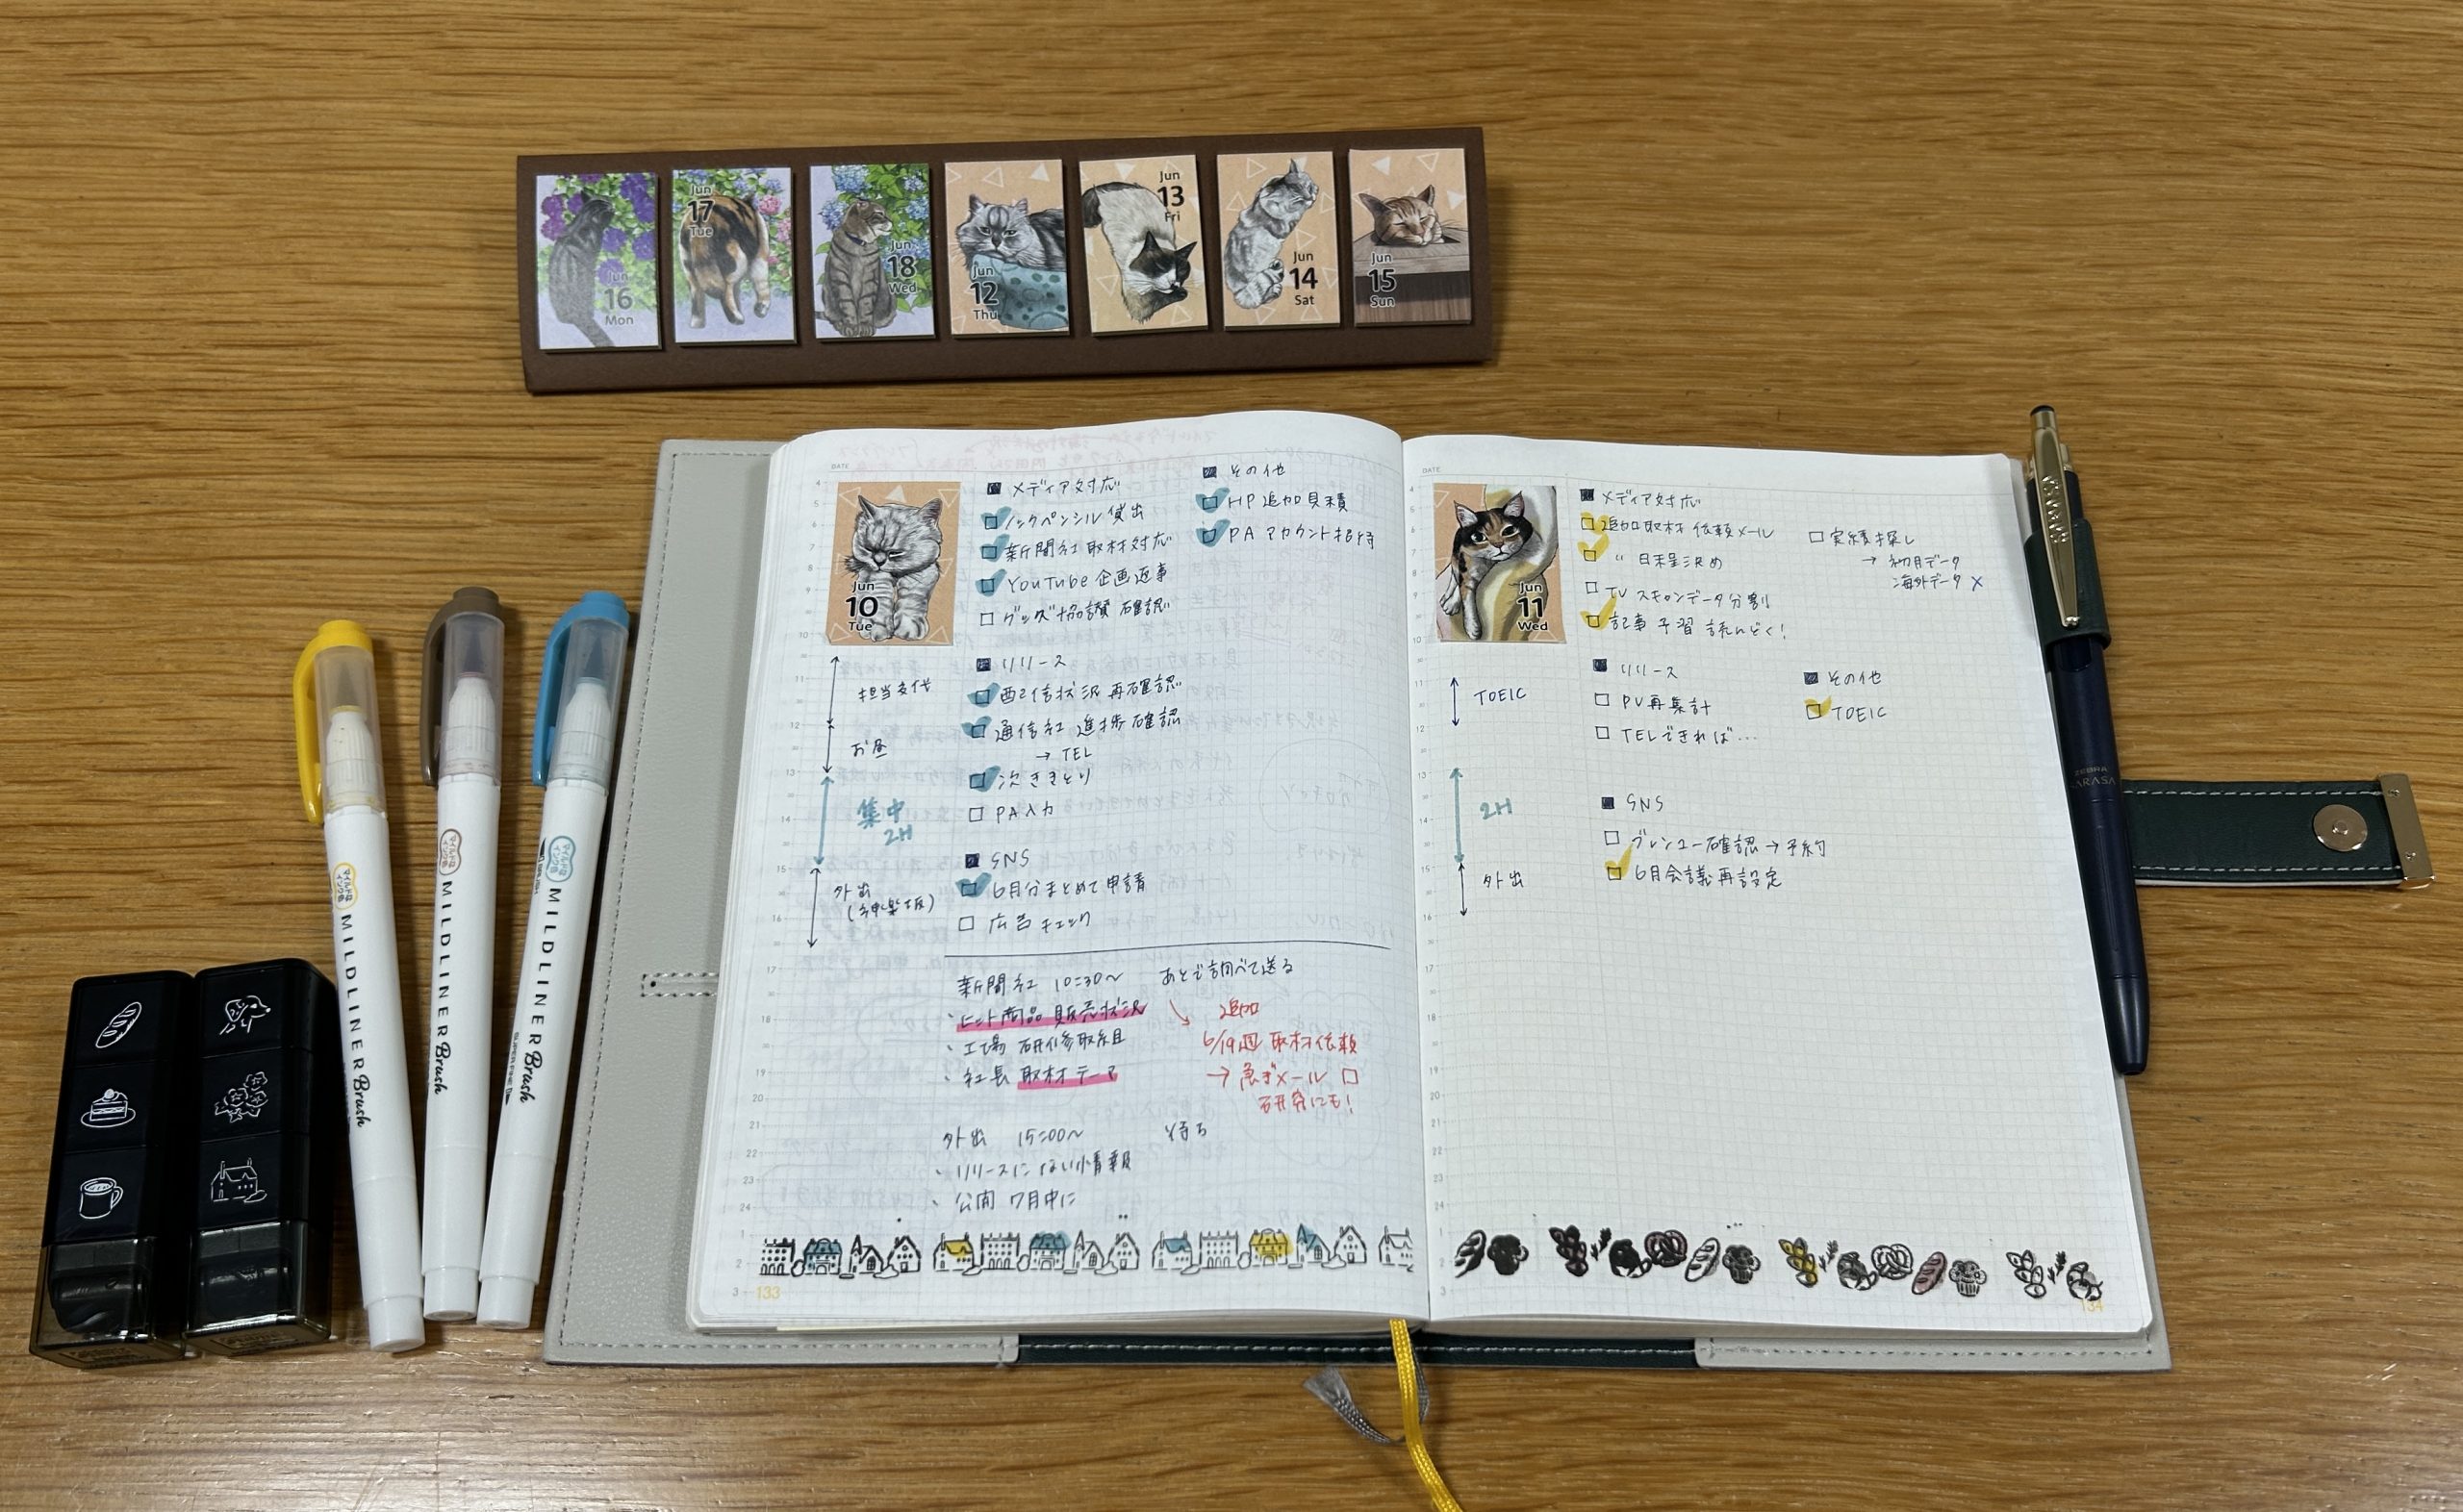 Jun
16
Mon
Jun
17
Tue
Jun
18
Wed
Jun
12
Thu
Jun
13
Fri
Jun
14
Sat
Jun
15
Sun
DATE
Jun
10
Tue
■ メディア対応
□ ノックペンシル 貸出
□ 新聞社 取材対応
□ YouTube 企画返事
□ グッズ協賛 確認
■ その他
□ HP 追加見積
□ PA アカウント招待
担当交代
お昼
集中
2H
外出
(神楽坂)
■ リリース
□ 配信状況 再確認
□ 通信社 進捗確認
→ TEL
□ 次ききとり
□ PA入力
■ SNS
□ 6月分まとめて申請
□ 広告チェック
新聞社 10:30〜
・ヒット商品 販売状況
・工場 研修取組
・社長 取材テーマ
あとで調べて送る
追加
6/19週 取材依頼
→ 急ぎメール □
研発にも!
外出 15:00〜
・リリースにない情報
・公開 7月中に
待ち
133
DATE
Jun
11
Wed
■ メディア対応
□ 追加取材 依頼メール
□ 〃 日程決め
□ TV スキャンデータ分割
□ 記事 予習 読んどく!
□ 実績探し
→ 初月データ
海外データ ×
TOEIC
2H
外出
■ リリース
□ PV再集計
□ TELできれば…
■ その他
□ TOEIC
■ SNS
□ プレビュー確認→予約
□ 6月会議再設定
134
MILDLINER Brush
MILDLINER Brush
MILDLINER Brush
ZEBRA
SARASA